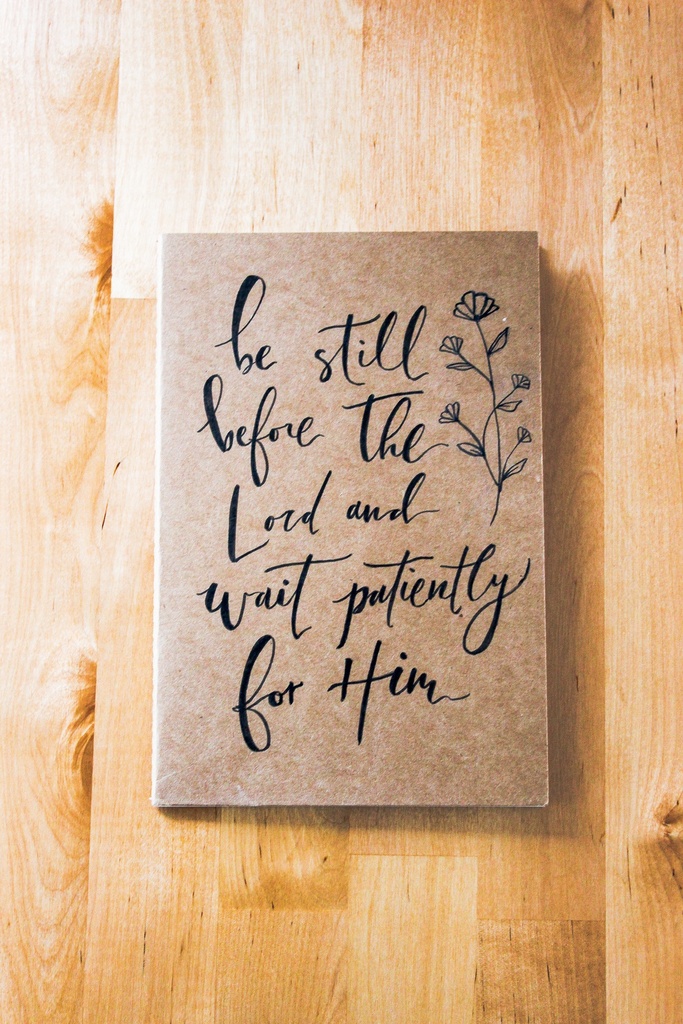 be still
before the
Lord and
wait patiently
for Him